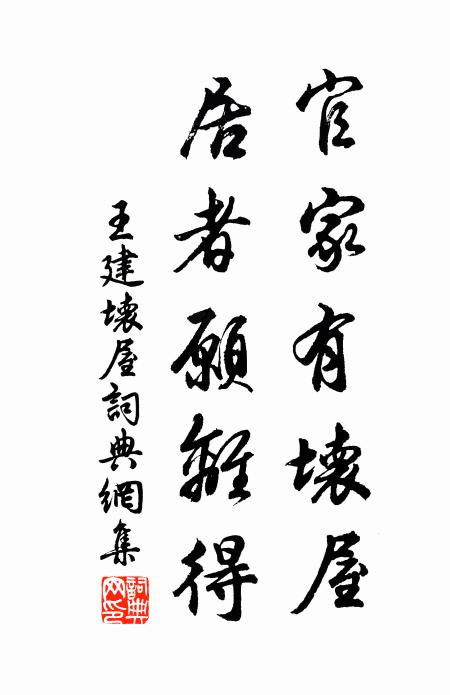 官家有壞屋
居者願離得
王建壞屋詞典網集
詞典網印